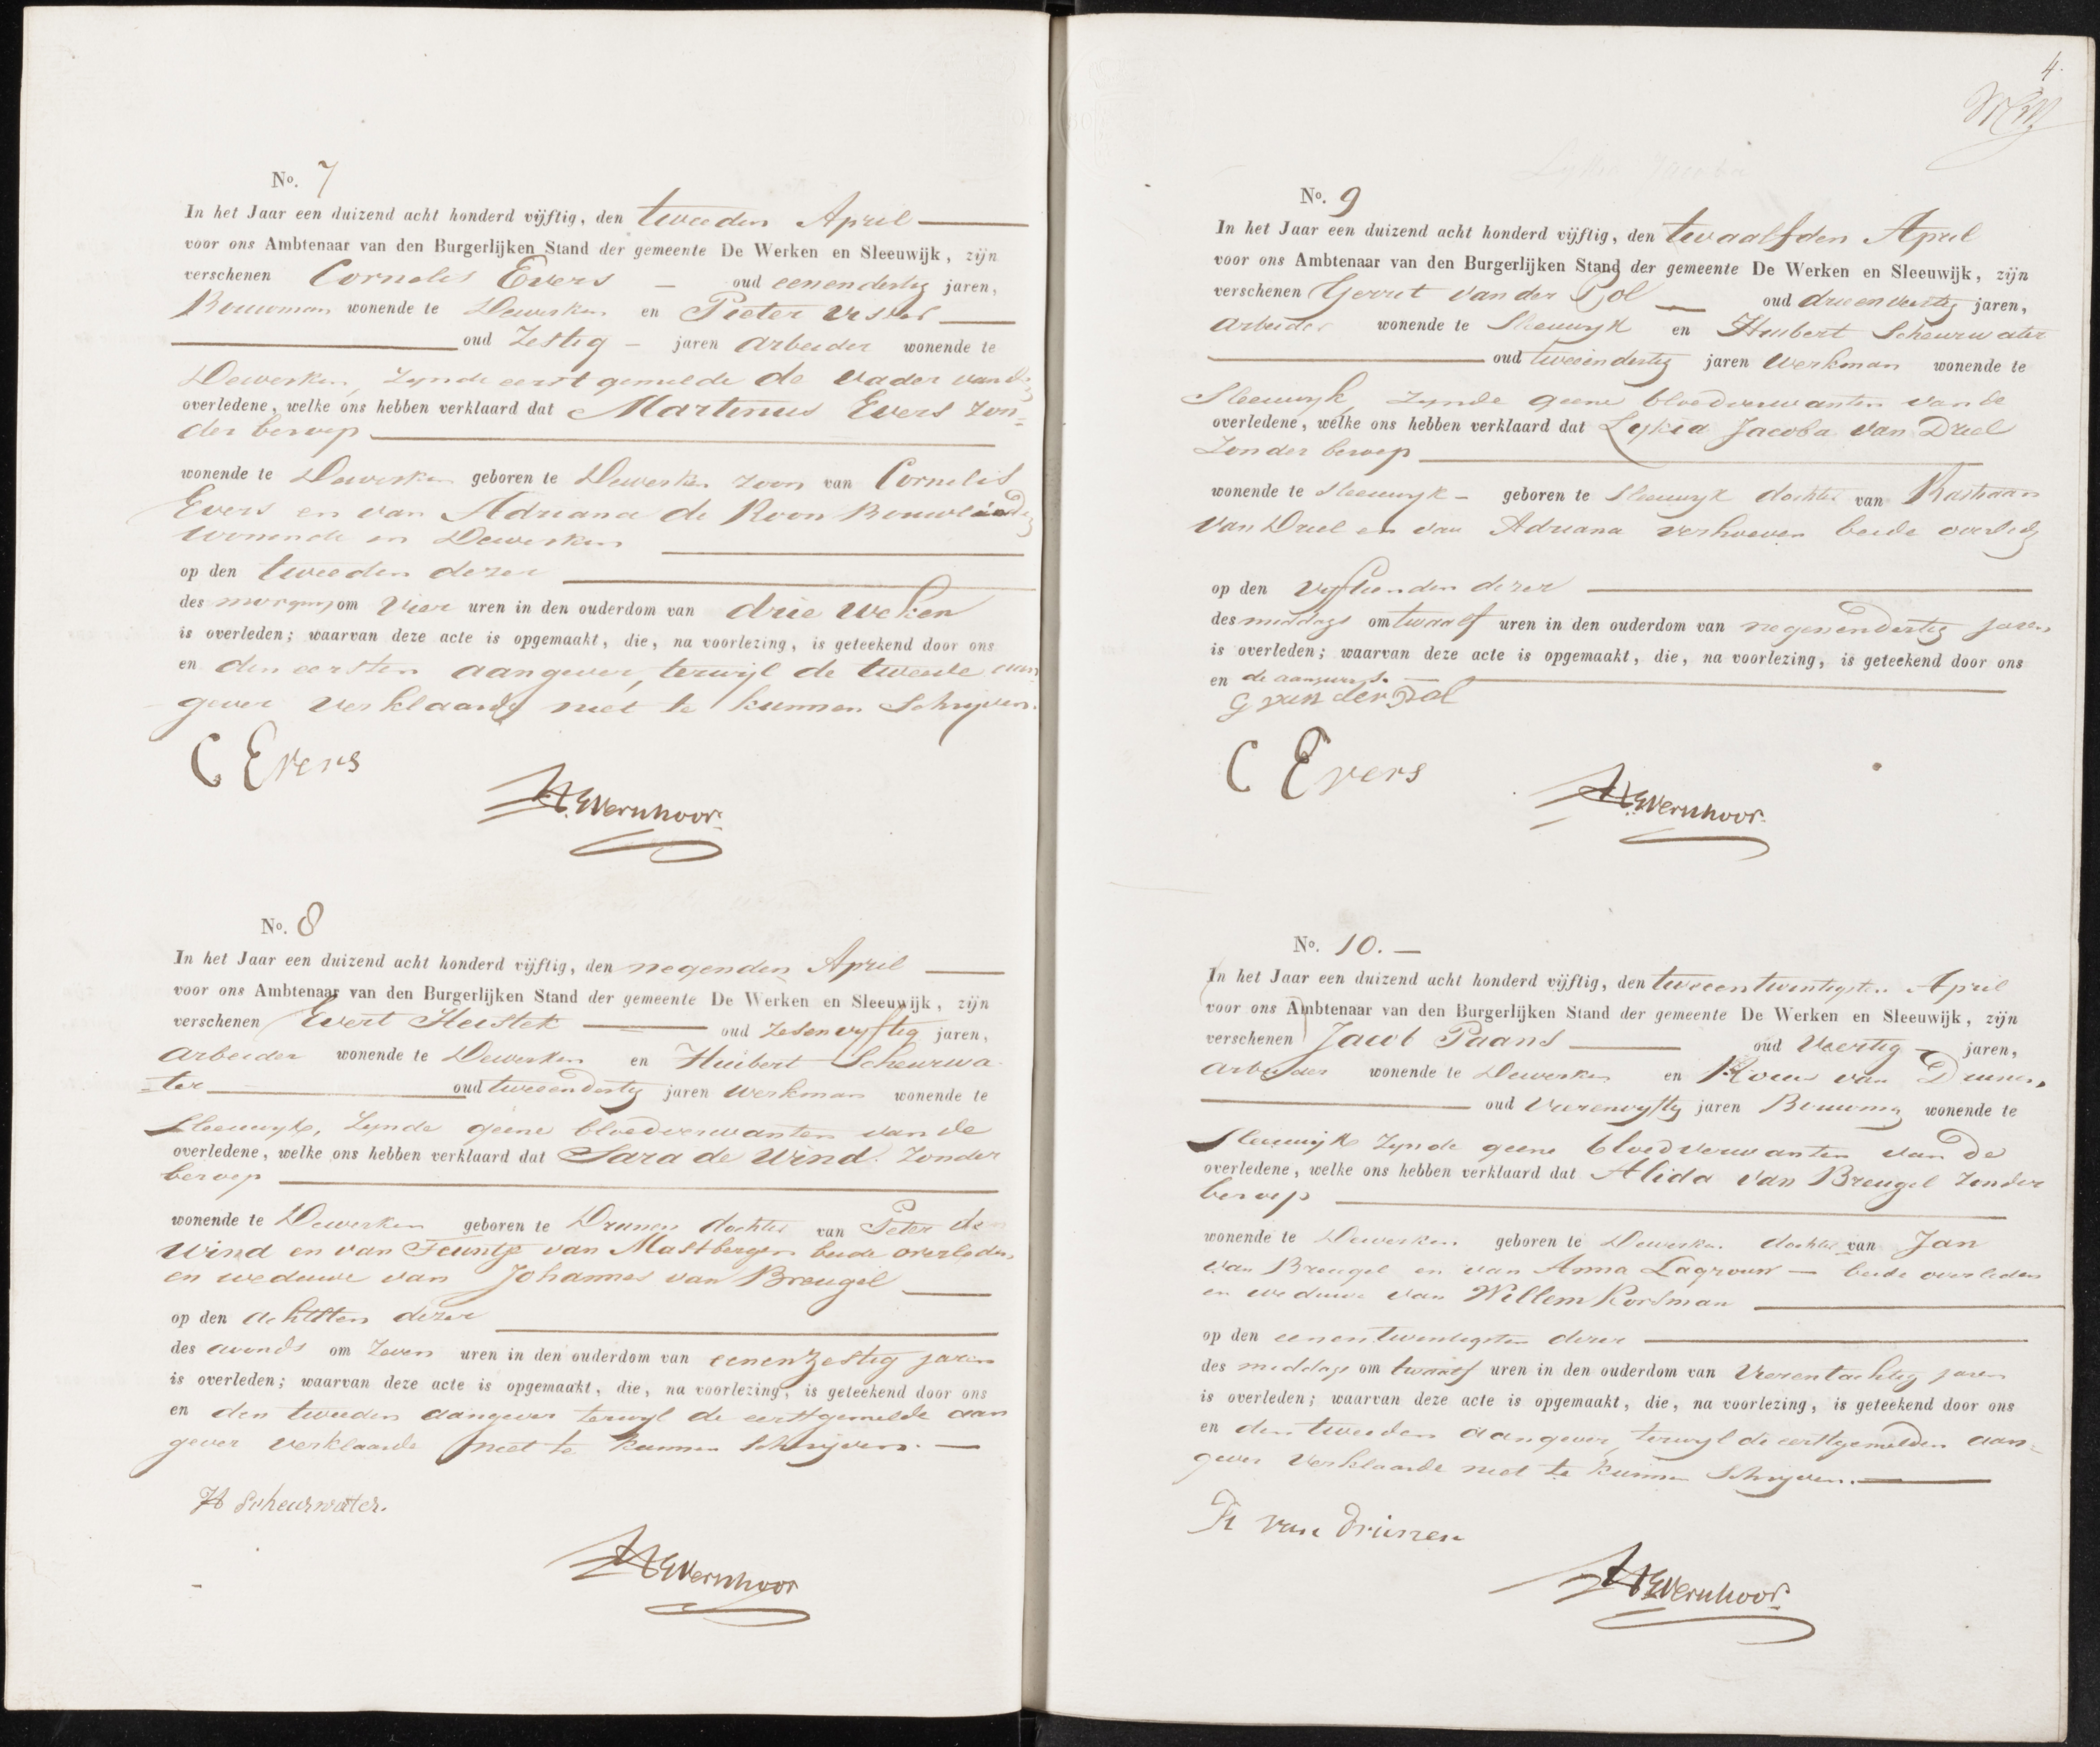 No. 7
In het Jaar een duizend acht honderd vijftig, den tweeden April
voor ons Ambtenaar van den Burgerlijken Stand der gemeente De Werken en Sleeuwijk, zijn
verschenen Cornelis Evers oud eenendertig jaren,
Bouwman wonende te Dewerken en Pieter Visser
oud Zestig - jaren arbeider wonende te
Dewerken, Zynde eerst gemelde de vader van de
overledene, welke ons hebben verklaard dat Martinus Evers zon-
der beroep
wonende te Dewerken geboren te Dewerken zoon van Cornelis
Evers en van Adriana de Roon Bouwlieden
wonende in Dewerken
op den tweeden dezer
des morgens om Vier uren in den ouderdom van drie weken
is overleden; waarvan deze acte is opgemaakt, die, na voorlezing, is geteekend door ons
en den eersten aangever, terwijl de tweede aan
gever verklaarde niet te kunnen Schrijven.
C Evers
Vernhoor
No. 8
In het Jaar een duizend acht honderd vijftig, den negenden April
voor ons Ambtenaar van den Burgerlijken Stand der gemeente De Werken en Sleeuwijk, zijn
verschenen Evert Heistek oud zesenvyftig jaren,
arbeider wonende te Dewerken en Huibert Scheurwa
-ter oud tweeendertig jaren werkman wonende te
Sleeuwyk, Zynde geene bloedverwanten van de
overledene, welke ons hebben verklaard dat Sara de Wind. Zonder
beroep
wonende te Dewerken geboren te Drunen dochter van Peter de
Wind en van Teuntje van Mastbergen beide overleden
en weduwe van Johannes van Breugel
op den achtsten dezer
des avonds om Zeven uren in den ouderdom van eenenzestig jaren
is overleden; waarvan deze acte is opgemaakt, die, na voorlezing, is geteekend door ons
en den tweeden aangever terwyl de eerstgemelde aan
gever verklaarde niet te kunnen Schrijven.
H Scheurwater.
Vernhoor
4.
No. 9
In het Jaar een duizend acht honderd vijftig, den twaalfden April
voor ons Ambtenaar van den Burgerlijken Stand der gemeente De Werken en Sleeuwijk, zijn
verschenen Gerrit van der Pol oud drieenveertig jaren,
arbeider wonende te Sleeuwyk en Huibert Scheurwater
oud tweeendertig jaren Werkman wonende te
Sleeuwyk, Zynde geene bloedverwanten van de
overledene, welke ons hebben verklaard dat Lykia Jacoba van Driel
Zonder beroep
wonende te Sleeuwyk - geboren te Sleeuwyk dochter van Bastiaan
van Driel en van Adriana verhoeven beide overleden
op den vyftienden dezer
des middags om twaalf uren in den ouderdom van negenendertig jaren
is overleden; waarvan deze acte is opgemaakt, die, na voorlezing, is geteekend door ons
en de aangevers.
G van der Pol
C Evers
Vernhoor.
No. 10. —
In het Jaar een duizend acht honderd vijftig, den tweeentwintigsten April
voor ons Ambtenaar van den Burgerlijken Stand der gemeente De Werken en Sleeuwijk, zijn
verschenen Jacob Paans oud Veertig jaren,
arbeider wonende te Dewerken en van Drunen,
oud Vierenvyftig jaren Bouwm wonende te
Sleeuwijk Zynde geene bloedverwanten van de
overledene, welke ons hebben verklaard dat Alida van Breugel Zonder
beroep
wonende te Dewerken geboren te Dewerken dochter van Jan
van Breugel en van Anna Lagrouw — beide overleden
en weduwe van Willem Korsman
op den eenentwintigsten dezer
des middags om twaalf uren in den ouderdom van Vierentachtig jaren
is overleden; waarvan deze acte is opgemaakt, die, na voorlezing, is geteekend door ons
en den tweeden aangever, terwyl de eerstgemelden aan-
gever Verklaarde niet te kunnen Schryven.
van Drunen
Vernhoor.